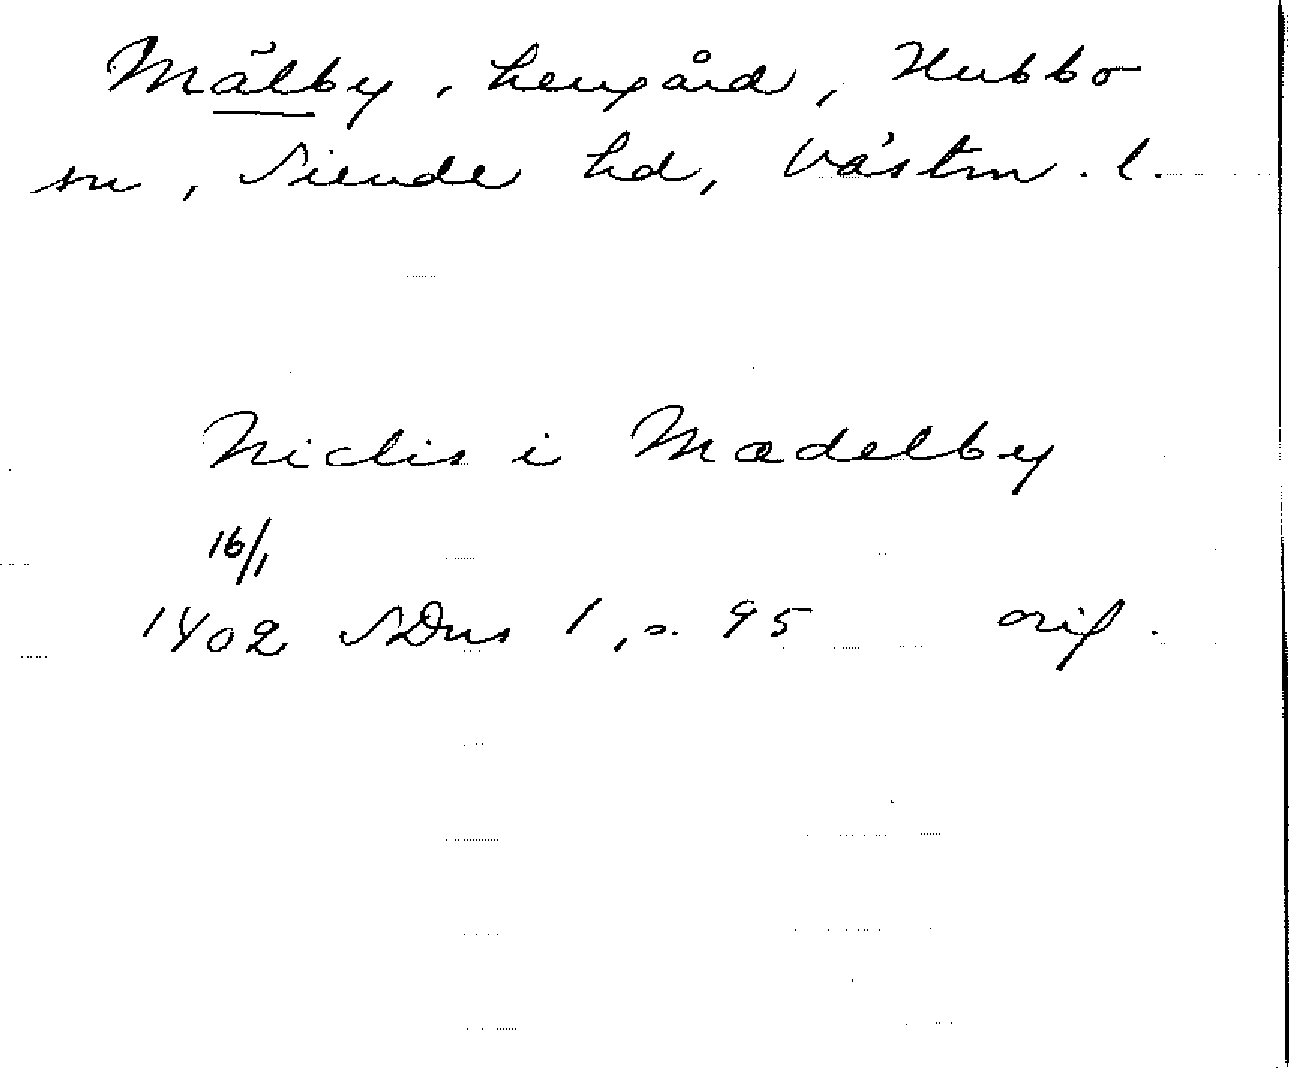 Mälby, herrgård, Hubbo
sn, Siende hd, Västm. l.
Niclis i Mædelby
16/1
1402 SDns 1, s. 95 orig.